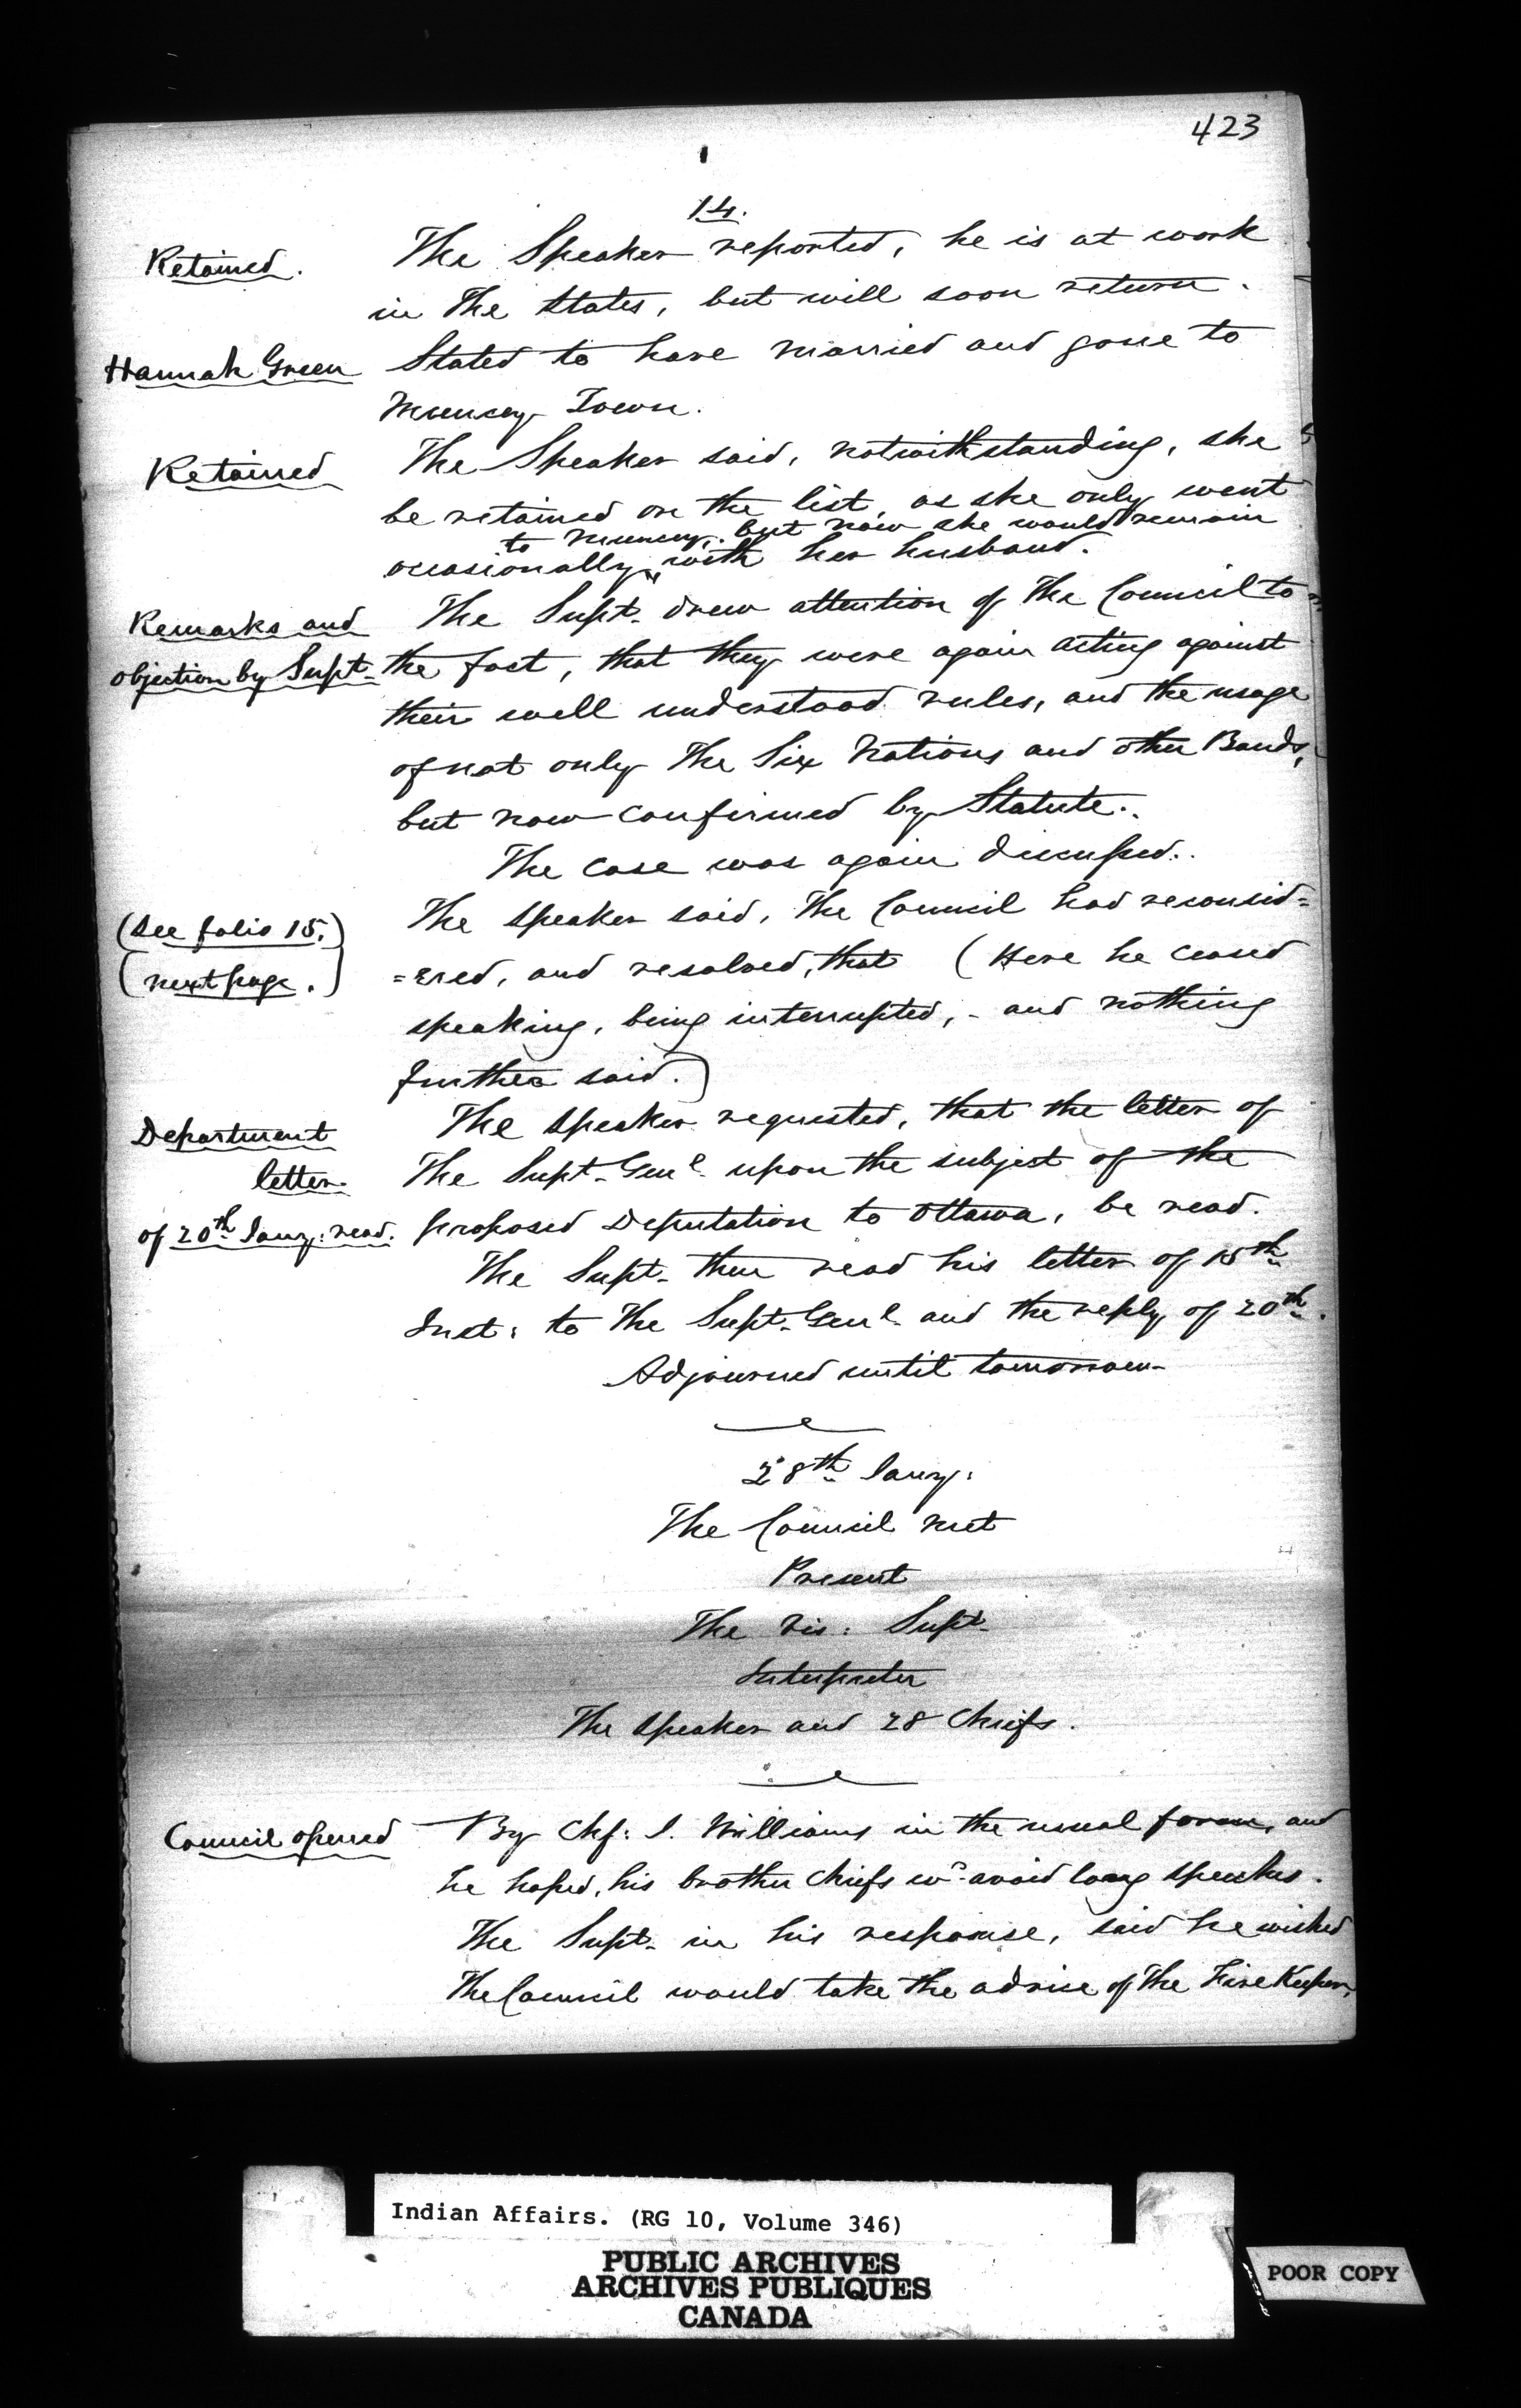 423
14.
Retained. The Speaker reported, he is at work
in The States, but will soon return.
Hannah Green Stated to have married and gone to
Muncey Town.
Retained The Speaker said, notwithstanding, she
be retained on the list, as she only went
to Muncey, but now she would remain
occasionally with her husband.
Remarks and The Supt. drew attention of The Council to
objection by Supt. the fact, that they were again acting against
their well understood rules, and the usage
of not only The Six Nations and other Bands,
but now confirmed by Statute.
The case was again discussed.
(See folio 15.) The Speaker said, The Council had reconsid=
(next page.) =ered, and resolved, that (Here he ceased
speaking, being interrupted, - and nothing
further said.)
Department The Speaker requested, that the letter of
letter The Supt. Genl. upon the subject of the
of 20th Jany: read. proposed Deputation to Ottawa, be read.
The Supt. then read his letter of 15th
Inst: to The Supt. Genl. and the reply of 20th.
Adjourned until tomorrow
28th Jany:
The Council met
Present
The Vis: Supt.
Interpreter
The Speaker and 28 Chiefs.
Council opened By Chf: J. Williams in the usual form, and
he hoped, his brother Chiefs wd. avoid long speeches.
The Supt. in his response, said he wished
The Council would take the advice of The Fire Keeper,
Indian Affairs. (RG 10, Volume 346)
PUBLIC ARCHIVES
ARCHIVES PUBLIQUES
CANADA
POOR COPY